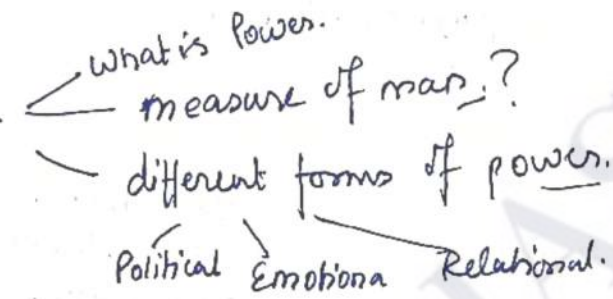 What is Power.
measure of man.?
different forms of power.
Political Emotiona Relational.